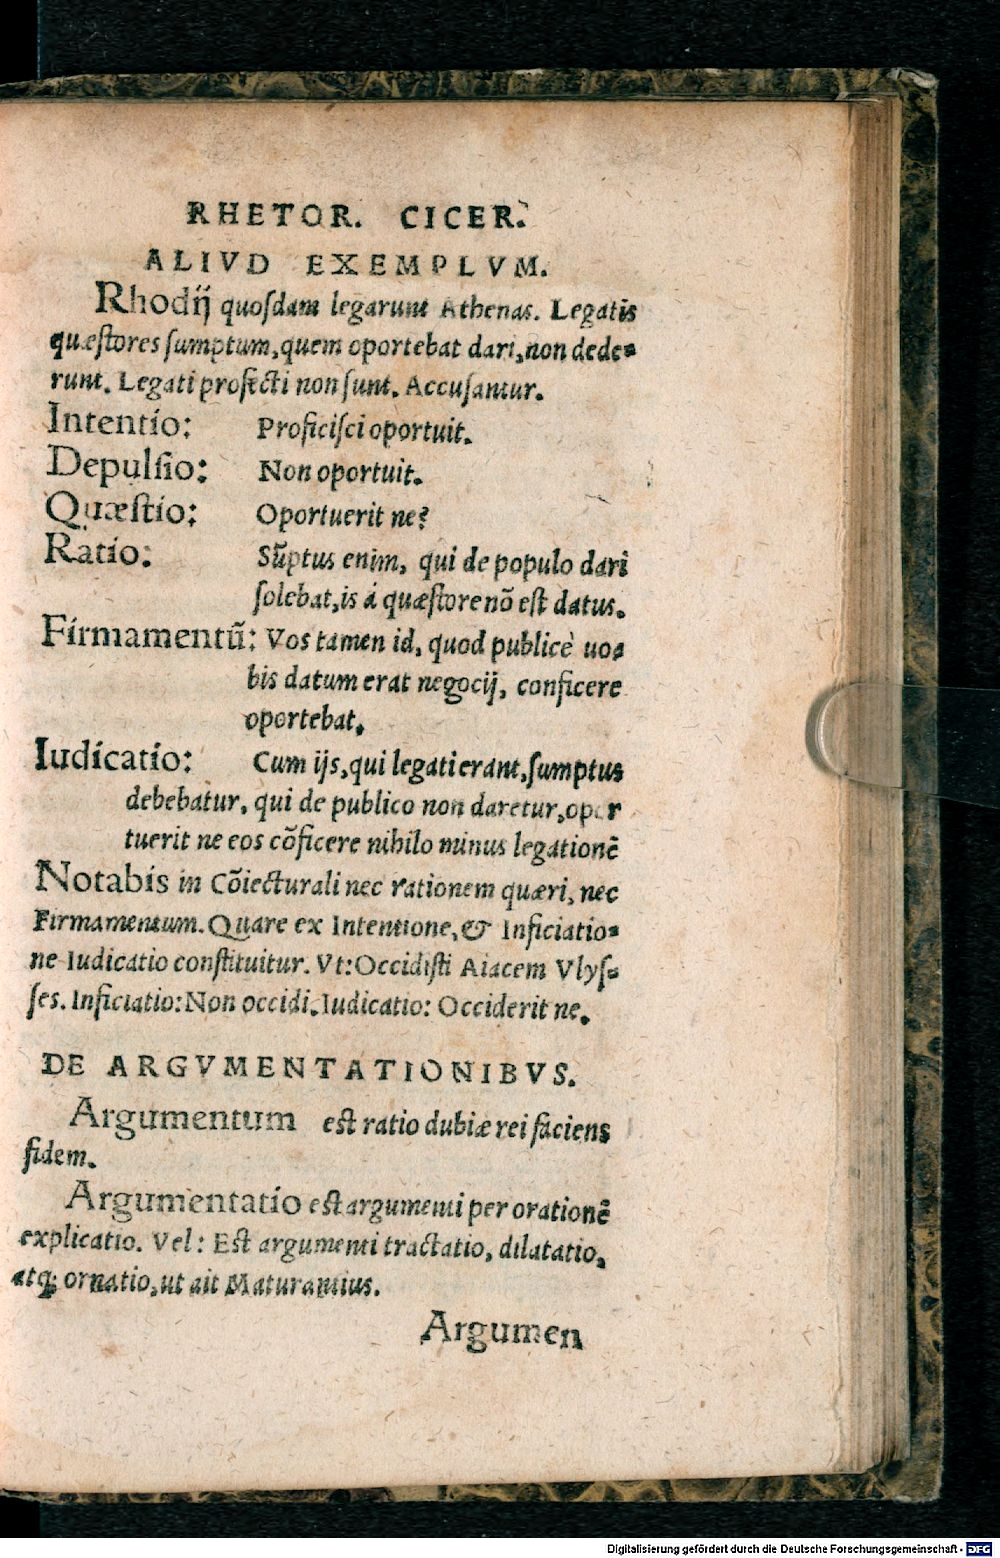 RHETOR. CICER.
ALIVD EXEMPLVM.
Rhodij quosdam legarunt Athenas. Legatis
quæstores sumptum, quem oportebat dari, non dede-
runt. Legati profecti non sunt. Accusantur.
Intentio: Proficisci oportuit.
Depulsio: Non oportuit.
Quæstio: Oportuerit ne?
Ratio: Sũptus enim, qui de populo dari
solebat, is á quæstore nõ est datus.
Firmamentũ: Vos tamen id, quod publicè uo-
bis datum erat negocij, conficere
oportebat.
Iudicatio: Cum ijs, qui legati erant, sumptus
debebatur, qui de publico non daretur, opor
tuerit ne eos cõficere nihilo minus legationẽ
Notabis in Cõiecturali nec rationem quæri, nec
Firmamentum. Quare ex Intentione, & Inficiatio-
ne Iudicatio constituitur. Vt: Occidisti Aiacem Vlys-
ses. Inficiatio: Non occidi. Iudicatio: Occiderit ne.
DE ARGVMENTATIONIBVS.
Argumentum est ratio dubiæ rei faciens
fidem.
Argumentatio est argumenti per orationẽ
explicatio. Vel: Est argumenti tractatio, dilatatio,
atq; ornatio, ut ait Maturantius.
Argumen
Digitalisierung gefördert durch die Deutsche Forschungsgemeinschaft - DFG